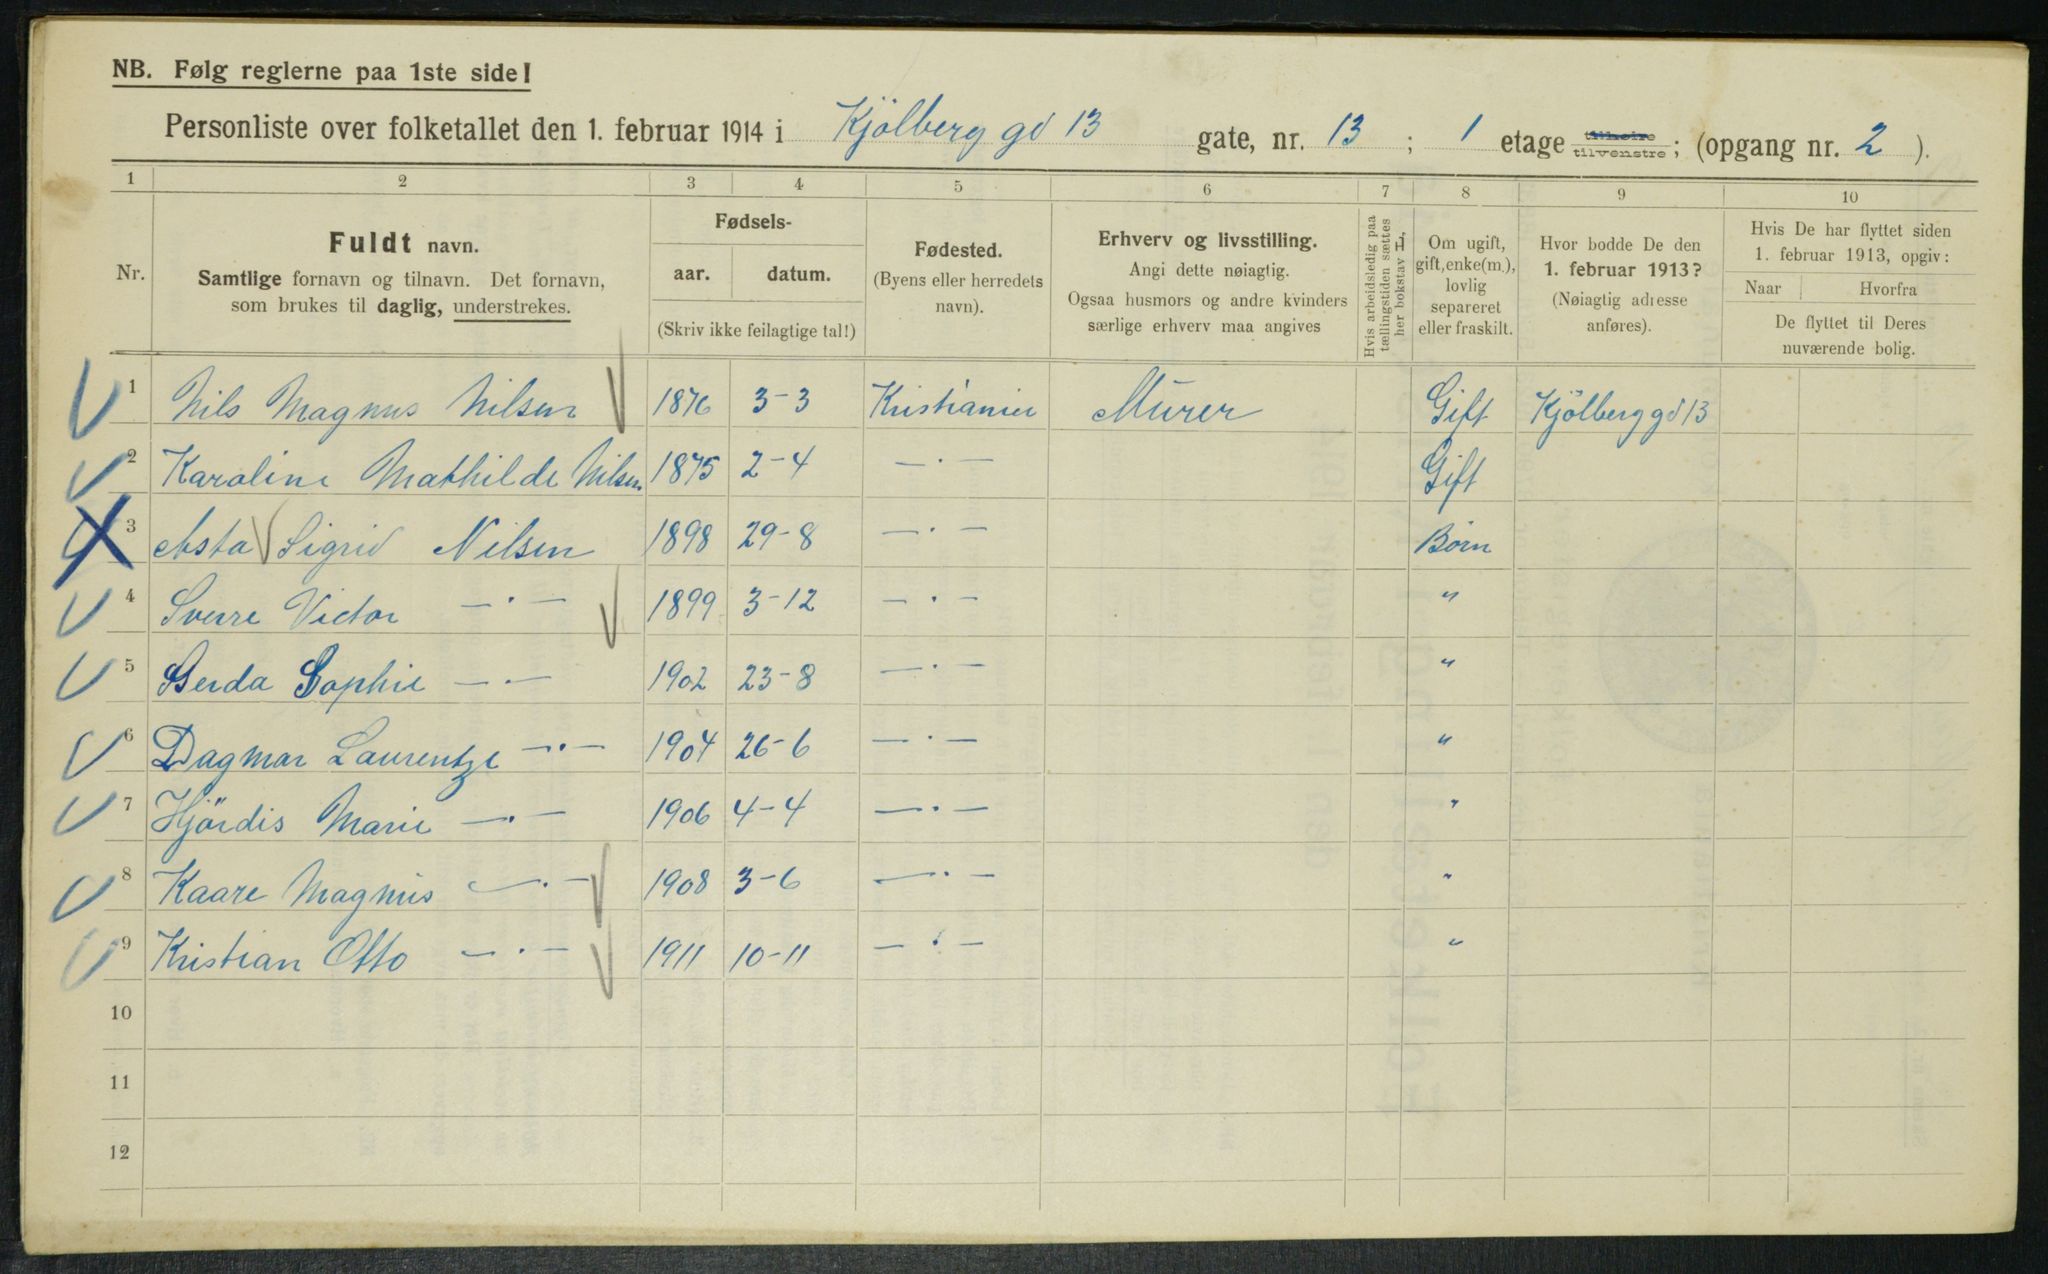 NB. Følg reglerne paa 1ste side!
Personliste over folketallet den 1. februar 1914 i Kjölberg gd 13 gate, nr. 13 ; 1 etage tilhøire tilvenstre ; (opgang nr. 2 ).
1 2 3 4 5 6 7 8 9 10
Nr.
Fuldt navn.
Samtlige fornavn og tilnavn. Det fornavn,
som brukes til daglig, understrekes.
Fødsels-
aar. datum.
(Skriv ikke feilagtige tal!)
Fødested.
(Byens eller herredets
navn).
Erhverv og livsstilling.
Angi dette nøiagtig.
Ogsaa husmors og andre kvinders
særlige erhverv maa angives
Hvis arbeidsledig paa
tællingstiden sættes
her bokstav L,
Om ugift,
gift, enke(m.),
lovlig
separeret
eller fraskilt.
Hvor bodde De den
1. februar 1913?
(Nøiagtig adresse
anføres).
Hvis De har flyttet siden
1. februar 1913, opgiv:
Naar Hvorfra
De flyttet til Deres
nuværende bolig.
1 Nils Magnus Nilsen 1876 3-3 Kristiania Murer Gift Kjölberg gd 13
2 Karoline Mathilde Nilsen 1875 2-4 — · — Gift
3 Asta Sigrid Nilsen 1898 29-8 — · — Børn
4 Sverre Victor — · — 1899 3-12 — · — "
5 Gerda Sophie — · — 1902 23-8 — · — "
6 Dagmar Laurentze — · — 1904 26-6 — · — "
7 Hjördis Marie — · — 1906 4-4 — · — "
8 Kaare Magnus — · — 1908 3-6 — · — "
9 Kristian Otto — · — 1911 10-11 — · — "
10
11
12